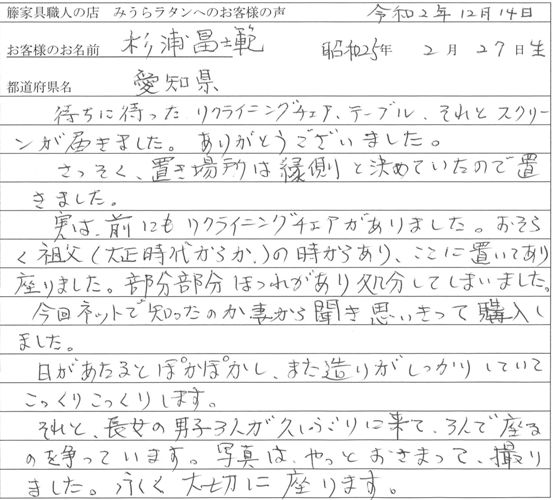 藤家具職人の店 みうらラタンへのお客様の声 令和2年12月14日
お客様のお名前 杉浦昌士範 昭和25年 2月27日生
都道府県名 愛知県
待ちに待った リクライニングチェア、テーブル、それとスクリー
ンが届きました。ありがとうございました。
さっそく、置き場所は縁側と決めていたので置
きました。
実は、前にもリクライニングチェアがありました。おそら
く祖父(大正時代からか、)の時からあり、ここに置いてあり
座りました。部分部分ほつれがあり処分してしまいました。
今回ネットで知ったのか妻から聞き思いきって購入し
ました。
日があたるとぽかぽかし、また造りがしっかりしていて
こっくりこっくりします。
それと、長女の男子3人が久しぶりに来て、3人で座る
のを争っています。写真は、やっとおさまって、撮り
ました。永く大切に座ります。